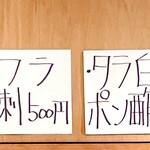 フラ
刺500円
・タラ白
ポン酢